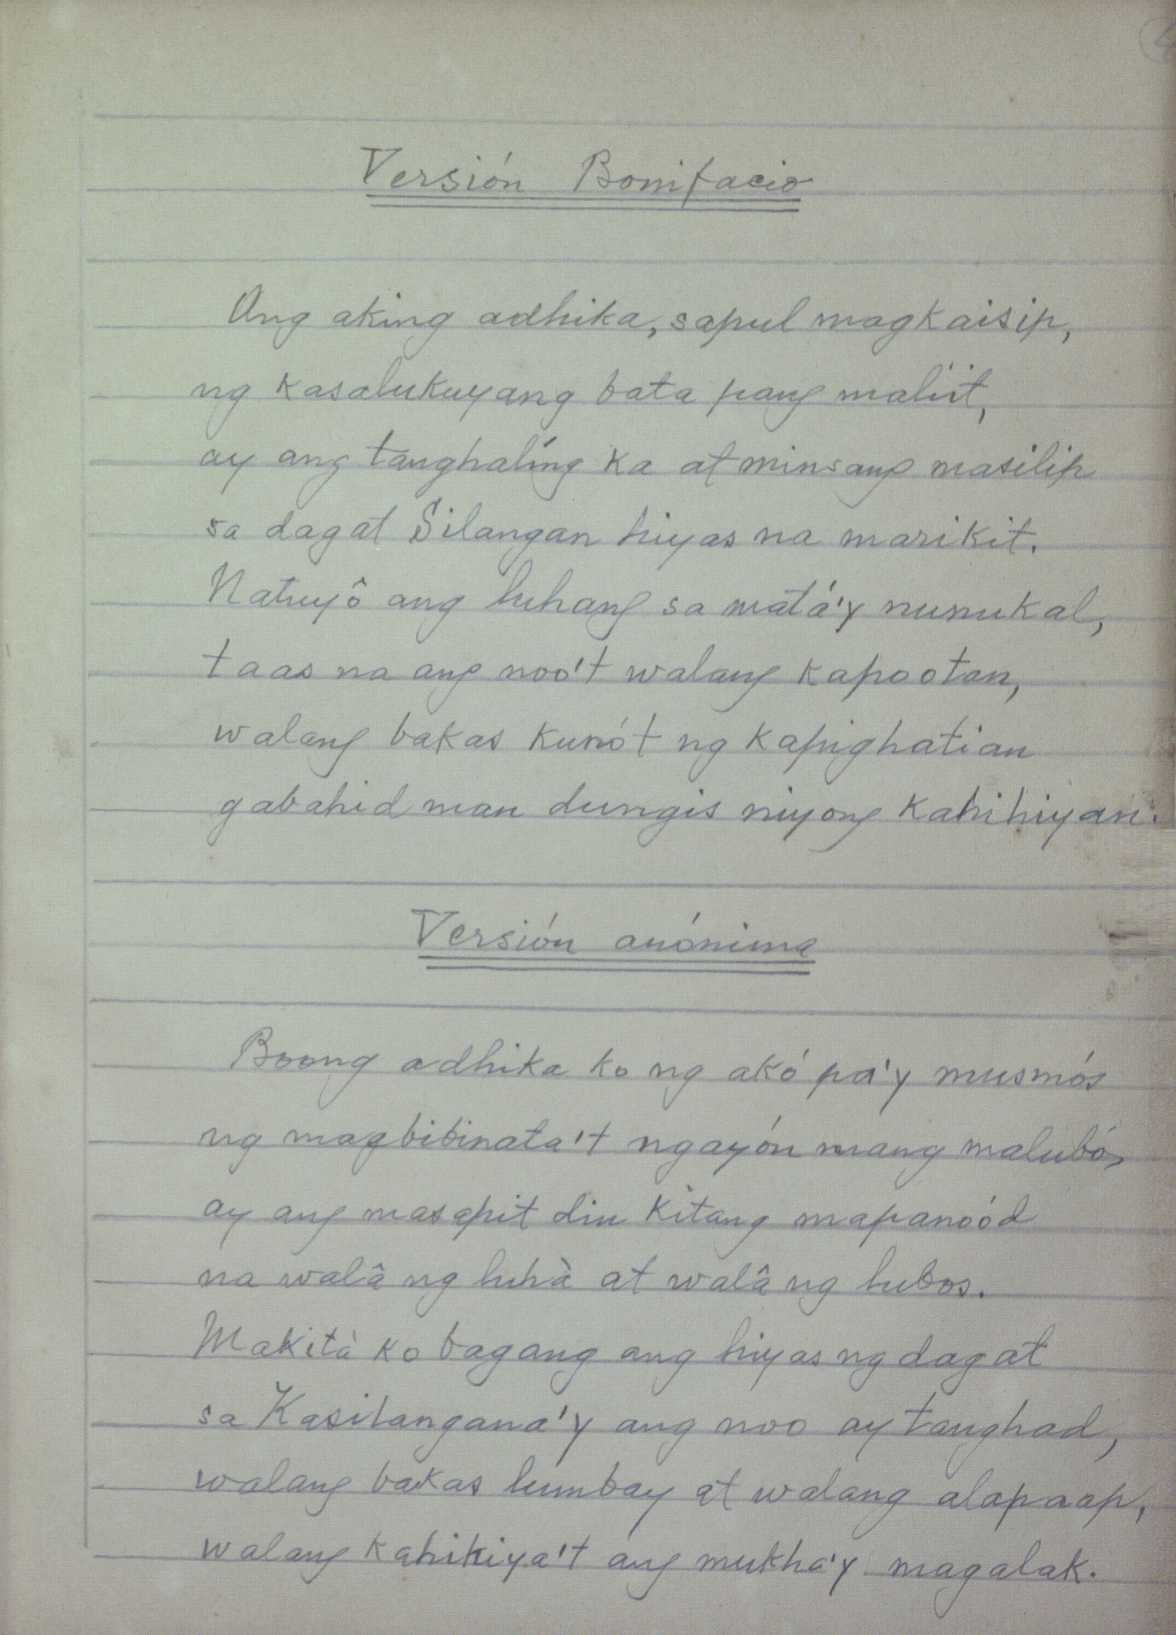 4
Versión Bonifacio
Ang aking adhika, sapul magkaisip,
ng kasalukuyang bata pang maliit,
ay ang tanghaling ka at minsang masilip
sa dagat Silangan hiyas na marikit.
Natuyô ang luhang sa matá'y nunukal,
taas na ang noo't walang kapootan,
walang bakas kunót ng kapighatian
gabahid man dungis niyong kahihiyan.
Versión anónima
Boong adhika ko ng akó pa'y musmós
ng magbibinata't ngayón mang malubós,
ay ang masapit din kitang mapanoód
na walâ ng luhà at walâ ng lubos.
Makità ko bagang ang hiyas ng dagat
sa Kasilangana'y ang noo ay tanghad,
walang bakas lumbay at walang alapaap,
walang kahihiya't ang mukha'y magalak.